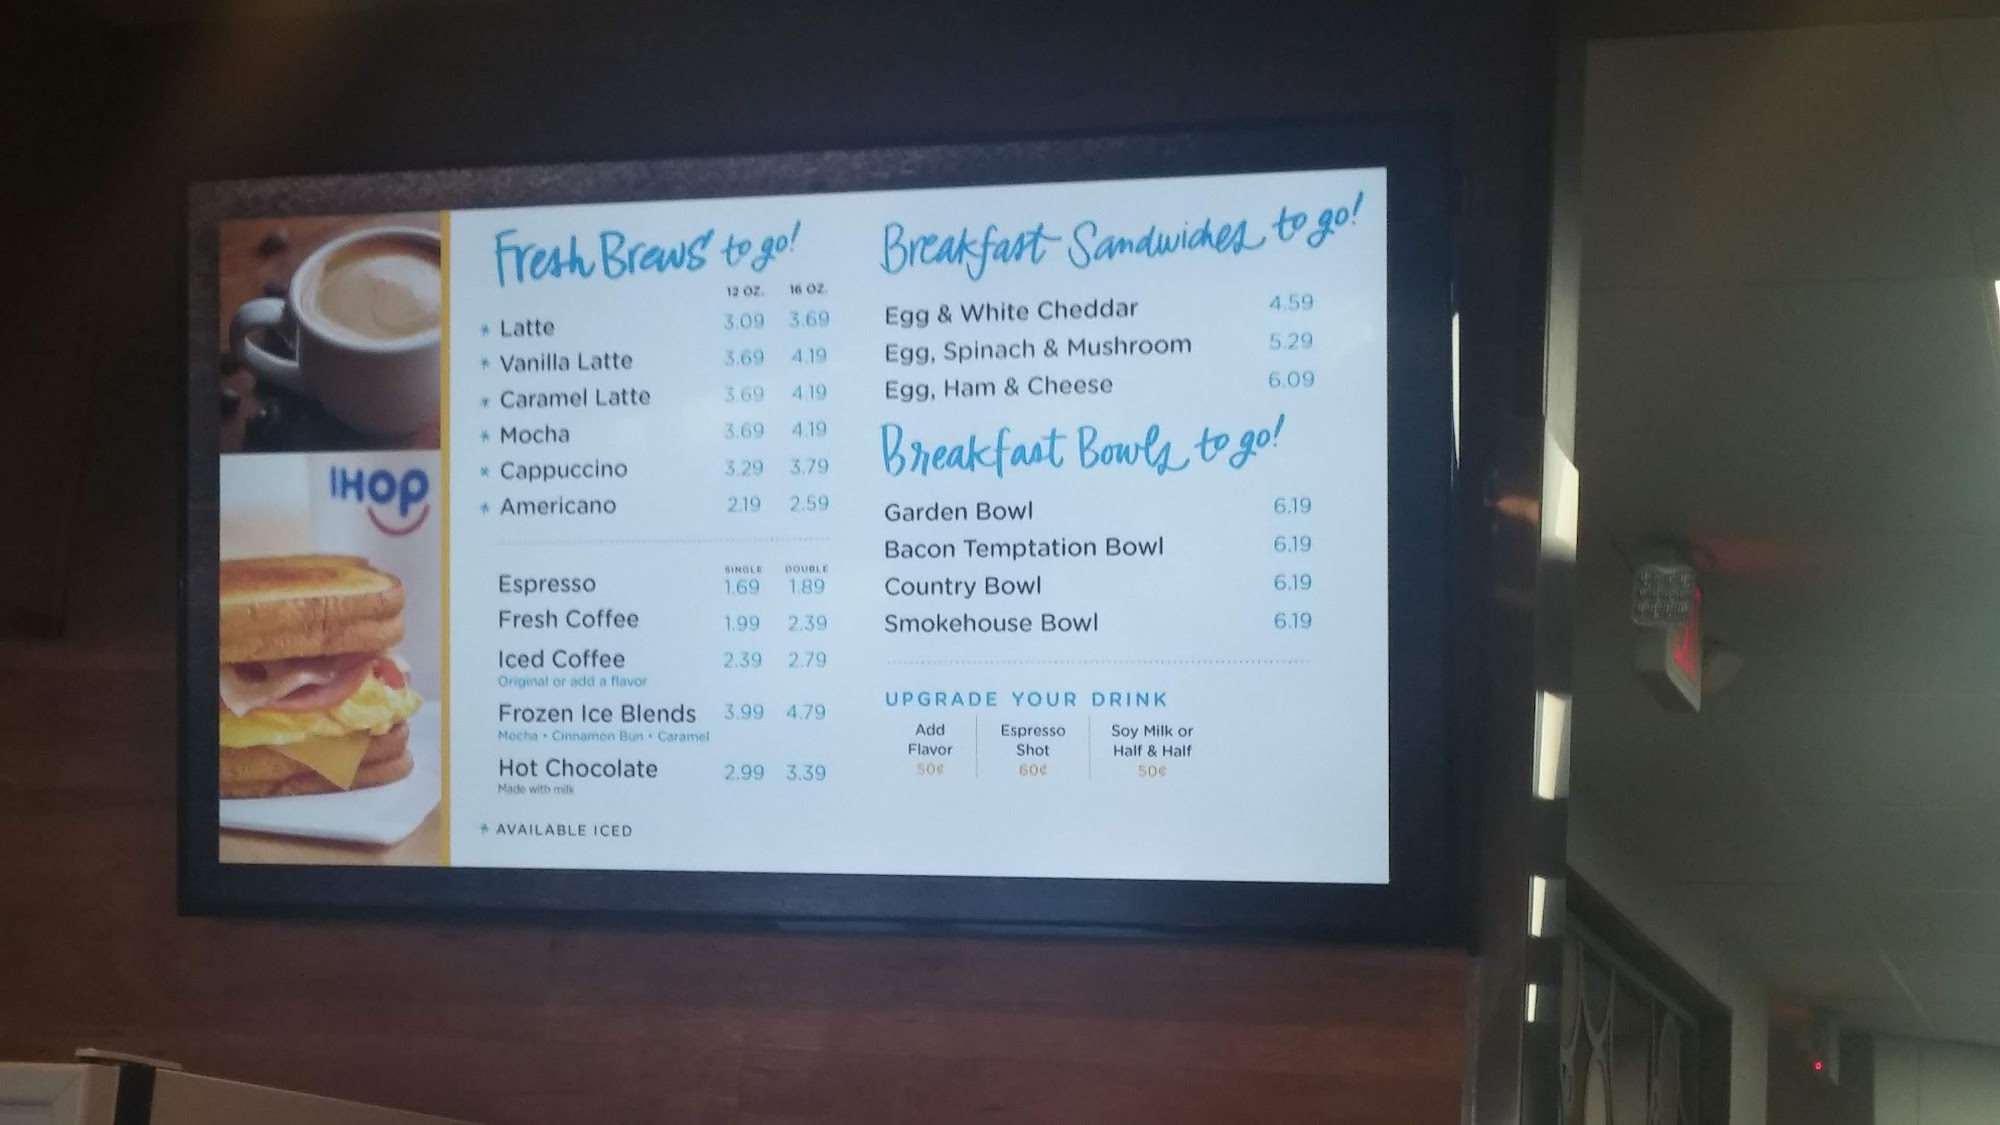 Fresh Brews to go!
12 OZ. 16 OZ.
* Latte 3.09 3.69
* Vanilla Latte 3.69 4.19
* Caramel Latte 3.69 4.19
* Mocha 3.69 4.19
* Cappuccino 3.29 3.79
* Americano 2.19 2.59
SINGLE DOUBLE
Espresso 1.69 1.89
Fresh Coffee 1.99 2.39
Iced Coffee 2.39 2.79
Original or add a flavor
Frozen Ice Blends 3.99 4.79
Mocha • Cinnamon Bun • Caramel
Hot Chocolate 2.99 3.39
Made with milk
* AVAILABLE ICED
Breakfast Sandwiches to go!
Egg & White Cheddar 4.59
Egg, Spinach & Mushroom 5.29
Egg, Ham & Cheese 6.09
Breakfast Bowls to go!
Garden Bowl 6.19
Bacon Temptation Bowl 6.19
Country Bowl 6.19
Smokehouse Bowl 6.19
UPGRADE YOUR DRINK
Add
Flavor
50¢
Espresso
Shot
60¢
Soy Milk or
Half & Half
50¢
IHOP